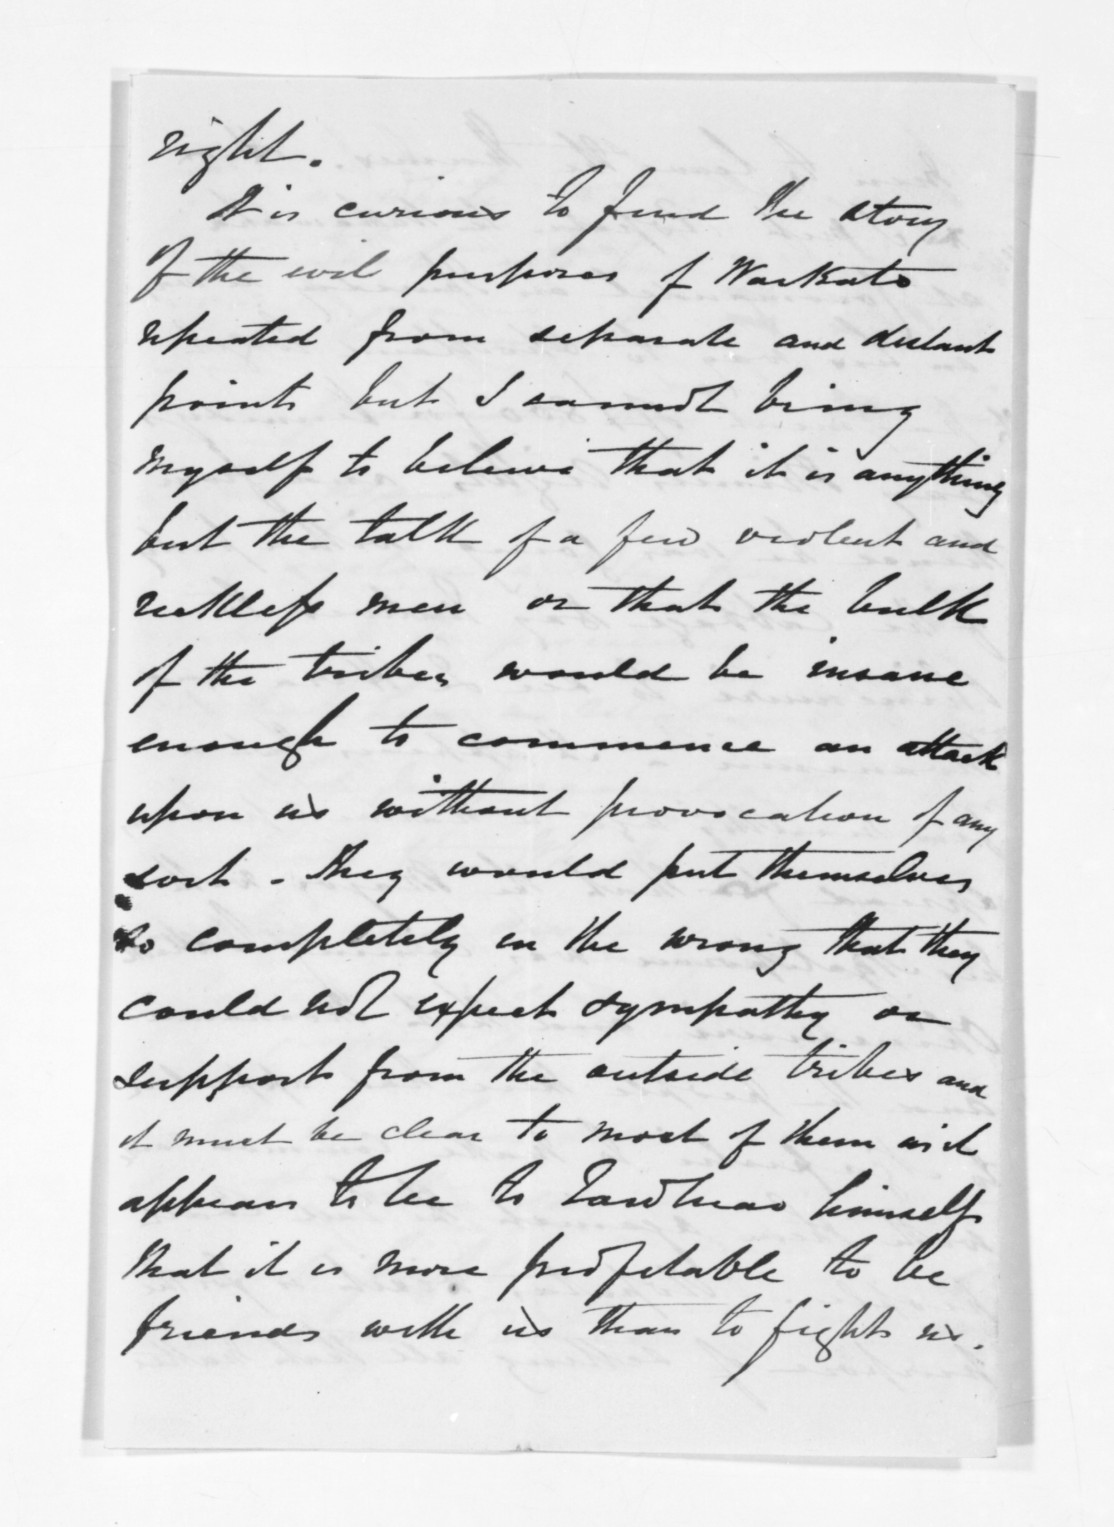 right.
It is curious to find the story
of the evil purposes of Waikato
repeated from separate and distant
points but I cannot bring
myself to believe that it is anything
but the talk of a few violent and
reckless men or that the bulk
of the tribes would be insane
enough to commence an attack
upon us without provocation of any
sort - They would put themselves
so completely in the wrong that they
could not expect sympathy or
support from the outside tribes and
it must be clear to most of them as it
appears to be to Tawhiao himself
that it is more profitable to be
friends with us than to fight us.